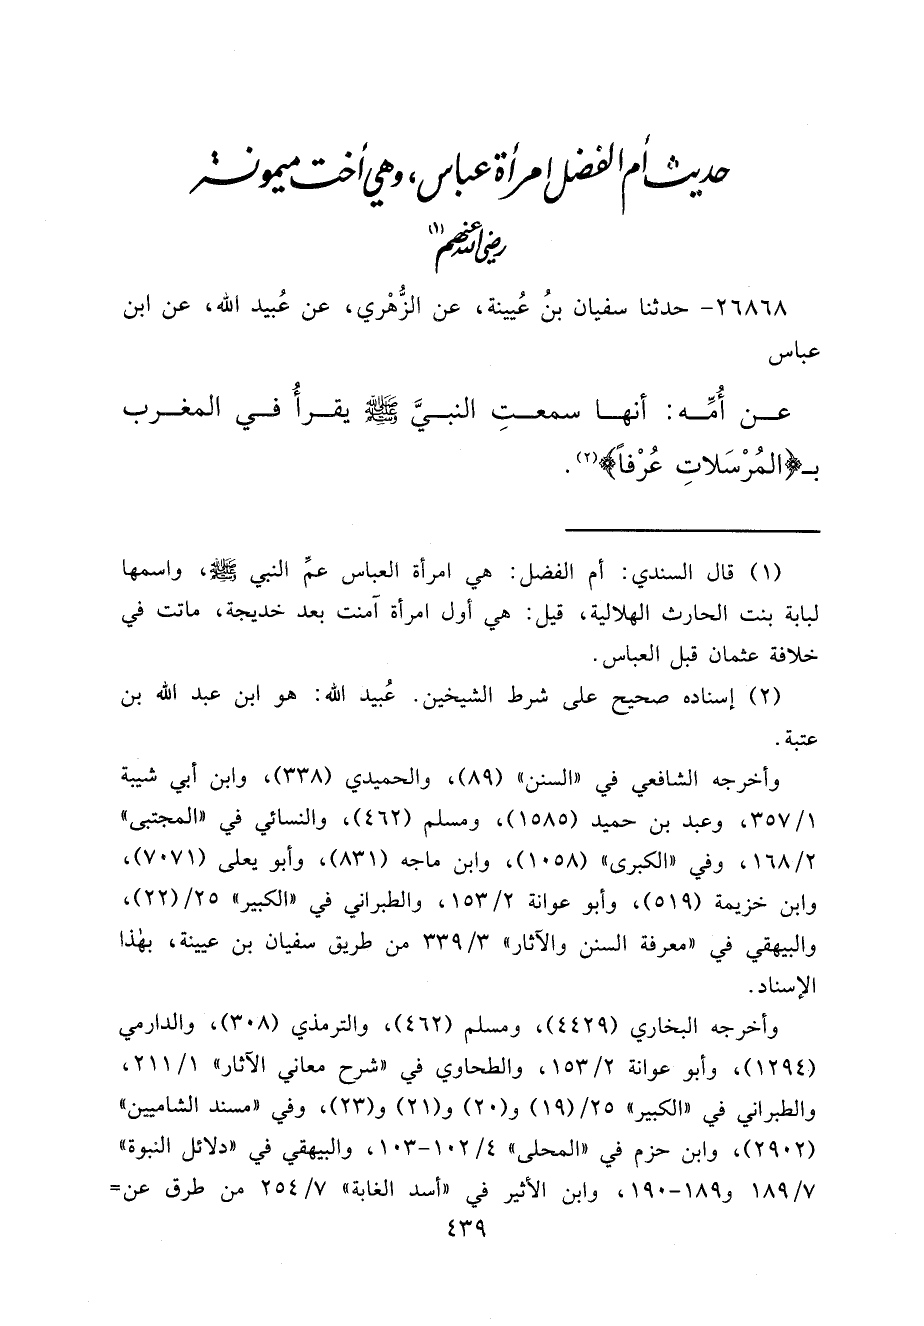 حديث أم الفضل امرأة عباس، وهي أخت ميمونة
رضي الله عنهم(١)
٢٦٨٦٨- حدثنا سفيان بنُ عُيينة، عن الزُّهْري، عن عُبيد الله، عن ابن
عباس
عن أُمِّه: أنها سمعتِ النبيَّ ﷺ يقرأُ في المغرب
بـ﴿المُرْسَلاتِ عُرْفاً﴾(٢).
(١) قال السندي: أم الفضل: هي امرأة العباس عمِّ النبي ﷺ، واسمها
لبابة بنت الحارث الهلالية، قيل: هي أول امرأة آمنت بعد خديجة، ماتت في
خلافة عثمان قبل العباس.
(٢) إسناده صحيح على شرط الشيخين. عُبيد الله: هو ابن عبد الله بن
عتبة.
وأخرجه الشافعي في «السنن» (٨٩)، والحميدي (٣٣٨)، وابن أبي شيبة
٣٥٧/١، وعبد بن حميد (١٥٨٥)، ومسلم (٤٦٢)، والنسائي في «المجتبى»
١٦٨/٢، وفي «الكبرى» (١٠٥٨)، وابن ماجه (٨٣١)، وأبو يعلى (٧٠٧١)،
وابن خزيمة (٥١٩)، وأبو عوانة ١٥٣/٢، والطبراني في «الكبير» ٢٥/(٢٢)،
والبيهقي في «معرفة السنن والآثار» ٣٣٩/٣ من طريق سفيان بن عيينة، بهٰذا
الإسناد.
وأخرجه البخاري (٤٤٢٩)، ومسلم (٤٦٢)، والترمذي (٣٠٨)، والدارمي
(١٢٩٤)، وأبو عوانة ١٥٣/٢، والطحاوي في «شرح معاني الآثار» ٢١١/١،
والطبراني في «الكبير» ٢٥/(١٩) و(٢٠) و(٢١) و(٢٣)، وفي «مسند الشاميين»
(٢٩٠٢)، وابن حزم في «المحلى» ١٠٢/٤-١٠٣، والبيهقي في «دلائل النبوة»
١٨٩/٧ و١٨٩-١٩٠، وابن الأثير في «أسد الغابة» ٢٥٤/٧ من طرق عن=
٤٣٩